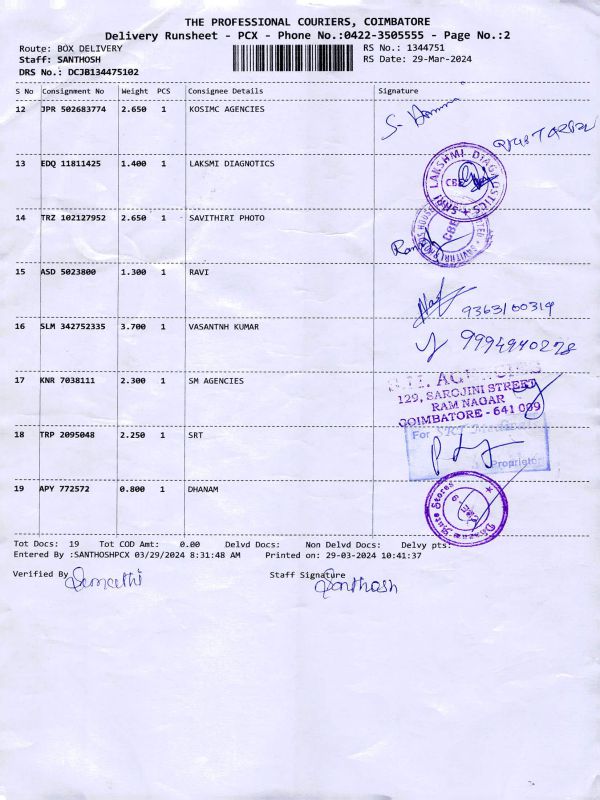 THE PROFESSIONAL COURIERS, COIMBATORE
Delivery Runsheet - PCX - Phone No.:0422-3505555 - Page No.:2
Route: BOX DELIVERY RS No.: 1344751
Staff: SANTHOSH RS Date: 29-Mar-2024
DRS No.: DCJB134475102
S No Consignment No Weight PCS Consignee Details Signature
12 JPR 502683774 2.650 1 KOSIMC AGENCIES
13 EDQ 11811425 1.400 1 LAKSMI DIAGNOTICS
SHRI LAKSHMI DIAGNOSTICS
CBE
14 TRZ 102127952 2.650 1 SAVITHIRI PHOTO
CBE
15 ASD 5023800 1.300 1 RAVI
9363100319
16 SLM 342752335 3.700 1 VASANTNH KUMAR
9994940278
17 KNR 7038111 2.300 1 SM AGENCIES
S.M. AGENCIES
129, SAROJINI STREET
RAM NAGAR
COIMBATORE - 641 009
18 TRP 2095048 2.250 1 SRT
For SRT
Proprietor
19 APY 772572 0.800 1 DHANAM
Stores
Tot Docs: 19 Tot COD Amt: 0.00 Delvd Docs: Non Delvd Docs: Delvy pts:
Entered By :SANTHOSHPCX 03/29/2024 8:31:48 AM Printed on: 29-03-2024 10:41:37
Verified By Staff Signature
Santhosh